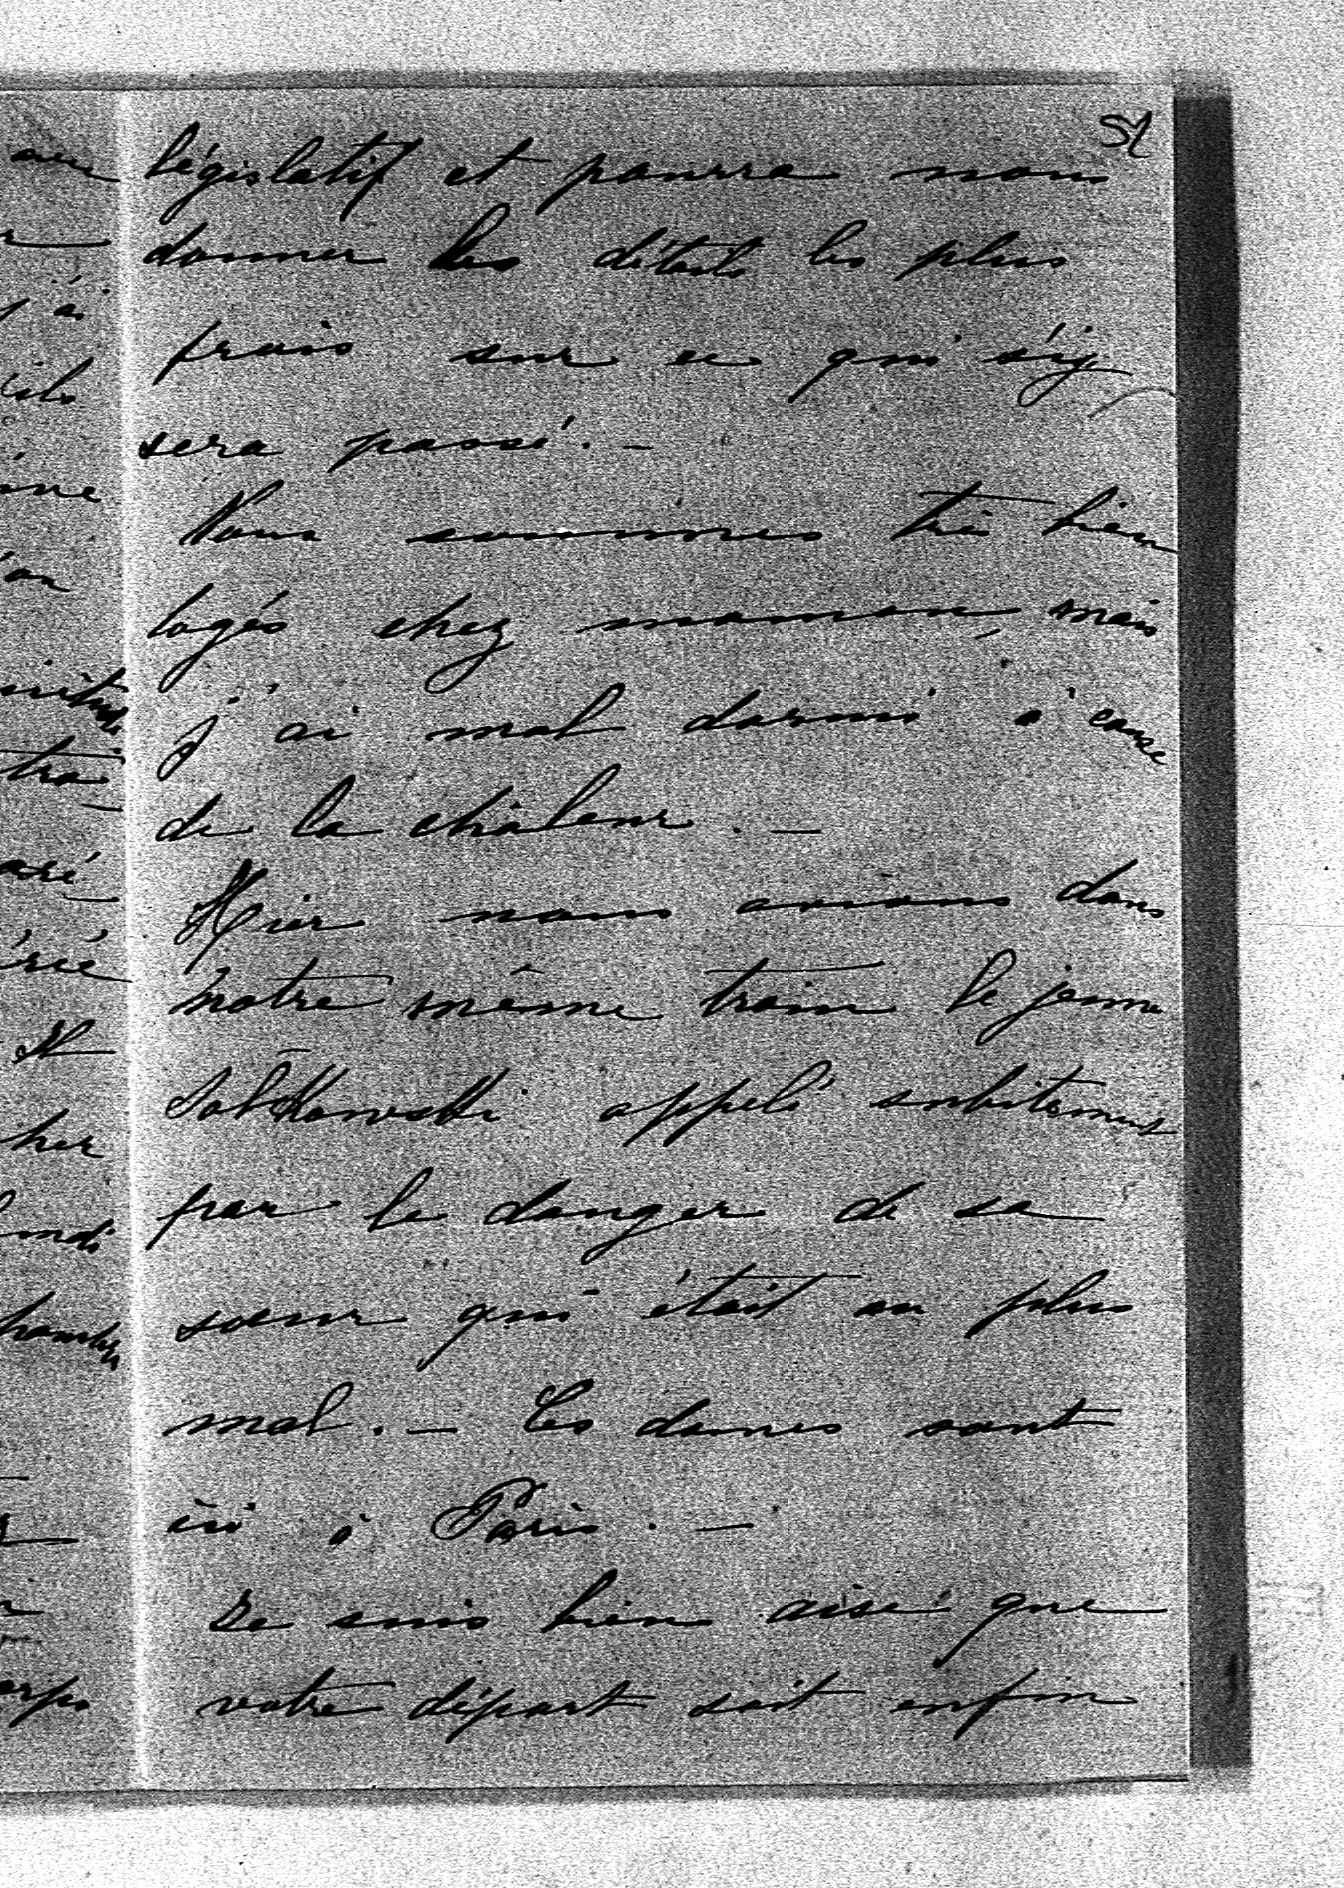 51
législatif et pourra nous
donner les détails les plus
frais sur ce qui s'y
sera passé. —
Nous sommes très bien
logés chez maman, mais
j'ai mal dormi à cause
de la châleur. —
Hier nous avions dans
notre même train le jeune
appelé subitement
par le danger de sa
sœur qui était au plus
mal. — Ces dames sont
ici à Paris. —
Je suis bien aise que
votre départ soit enfin